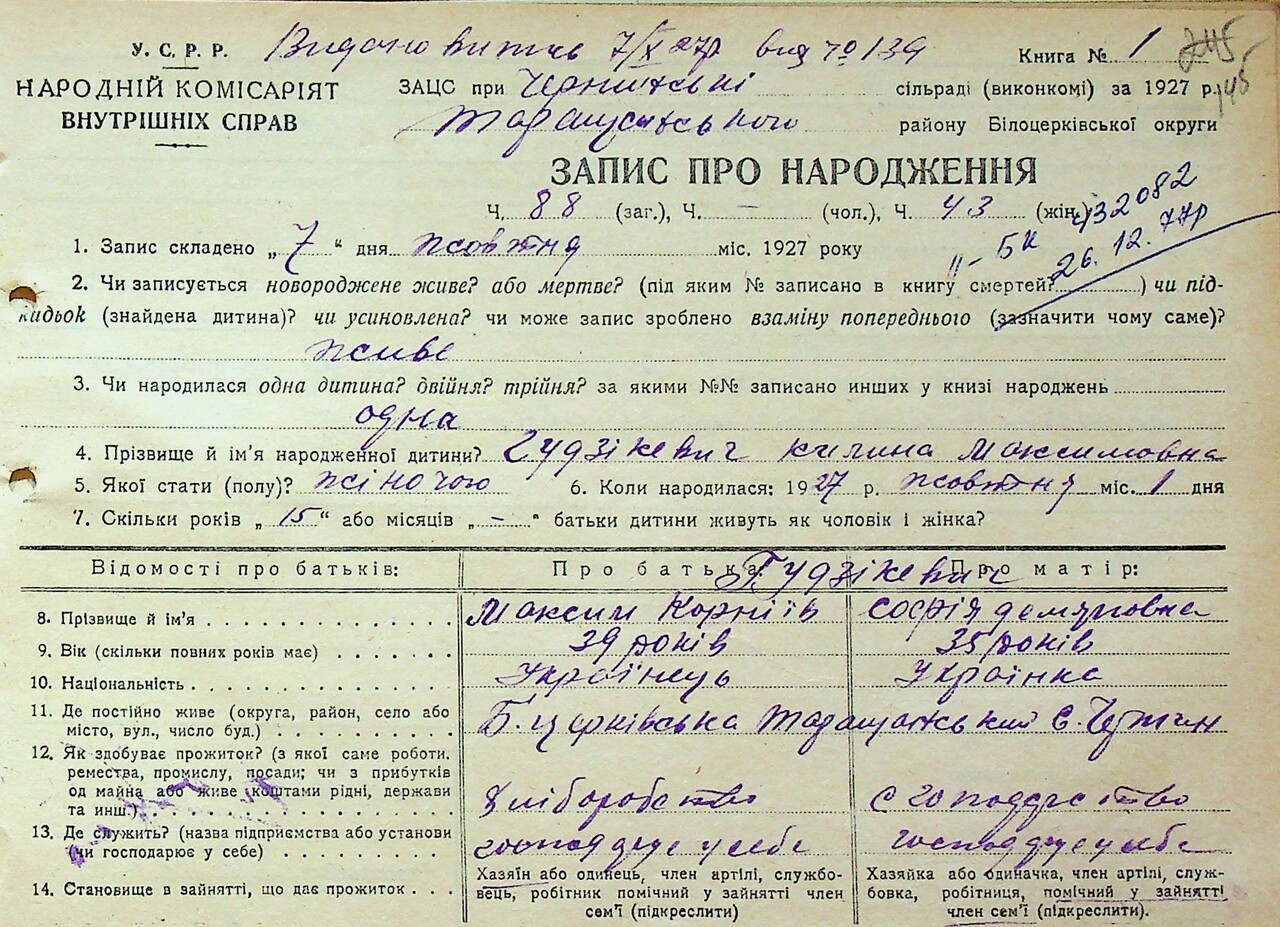 У. С. Р. Р. Видано витяг 7/X 27р вид № 139 Книга № 1 245
НАРОДНІЙ КОМІСАРІЯТ ЗАЦС при сільраді (виконкомі) за 1927 р. 145
ВНУТРІШНІХ СПРАВ Таращанського району Білоцерківської округи
ЗАПИС ПРО НАРОДЖЕННЯ
Ч. 88 (заг.), Ч. – (чол.), Ч. 43 (жін.) 432082
1. Запис складено „ 7 “ дня жовтня міс. 1927 року II-БК 26. 12. 77р
2. Чи записується новороджене живе? або мертве? (під яким № записано в книгу смертей? ) чи під-
кидьок (знайдена дитина)? чи усиновлена? чи може запис зроблено взаміну попереднього (зазначити чому саме)?
живе
3. Чи народилася одна дитина? двійня? трійня? за якими №№ записано инших у книзі народжень
одна
4. Прізвище й ім'я народженної дитини? Гудзікевич Килина Максимовна
5. Якої стати (полу)? жіночою 6. Коли народилася: 1927 р. жовтня міс. 1 дня
7. Скільки років „ 15 “ або місяців „ – “ батьки дитини живуть як чоловік і жінка?
Відомості про батьків: Про батька: Про матір:
Гудзікевич
8. Прізвище й ім'я Максим Корніїв Софія Демяновна
9. Вік (скільки повних років має) 39 років 35 років
10. Національність Українець Українка
11. Де постійно живе (округа, район, село або
місто, вул., число буд.) Б. церківська Таращанський с.
12. Як здобуває прожиток? (з якої саме роботи,
ремества, промислу, посади; чи з прибутків
од майна або живе коштами рідні, держави
та инш.) Хліборобство с господарство
13. Де служить? (назва підприємства або установи
(чи господарює у себе) господарює у себе господарює у себе
14. Становище в зайнятті, що дає прожиток Хазяїн або одинець, член артілі, службо-
вець, робітник помічний у зайнятті член
сем'ї (підкреслити)
Хазяйка або одиначка, член артілі, служ-
бовка, робітниця, помічний у зайнятті
член сем'ї (підкреслити).